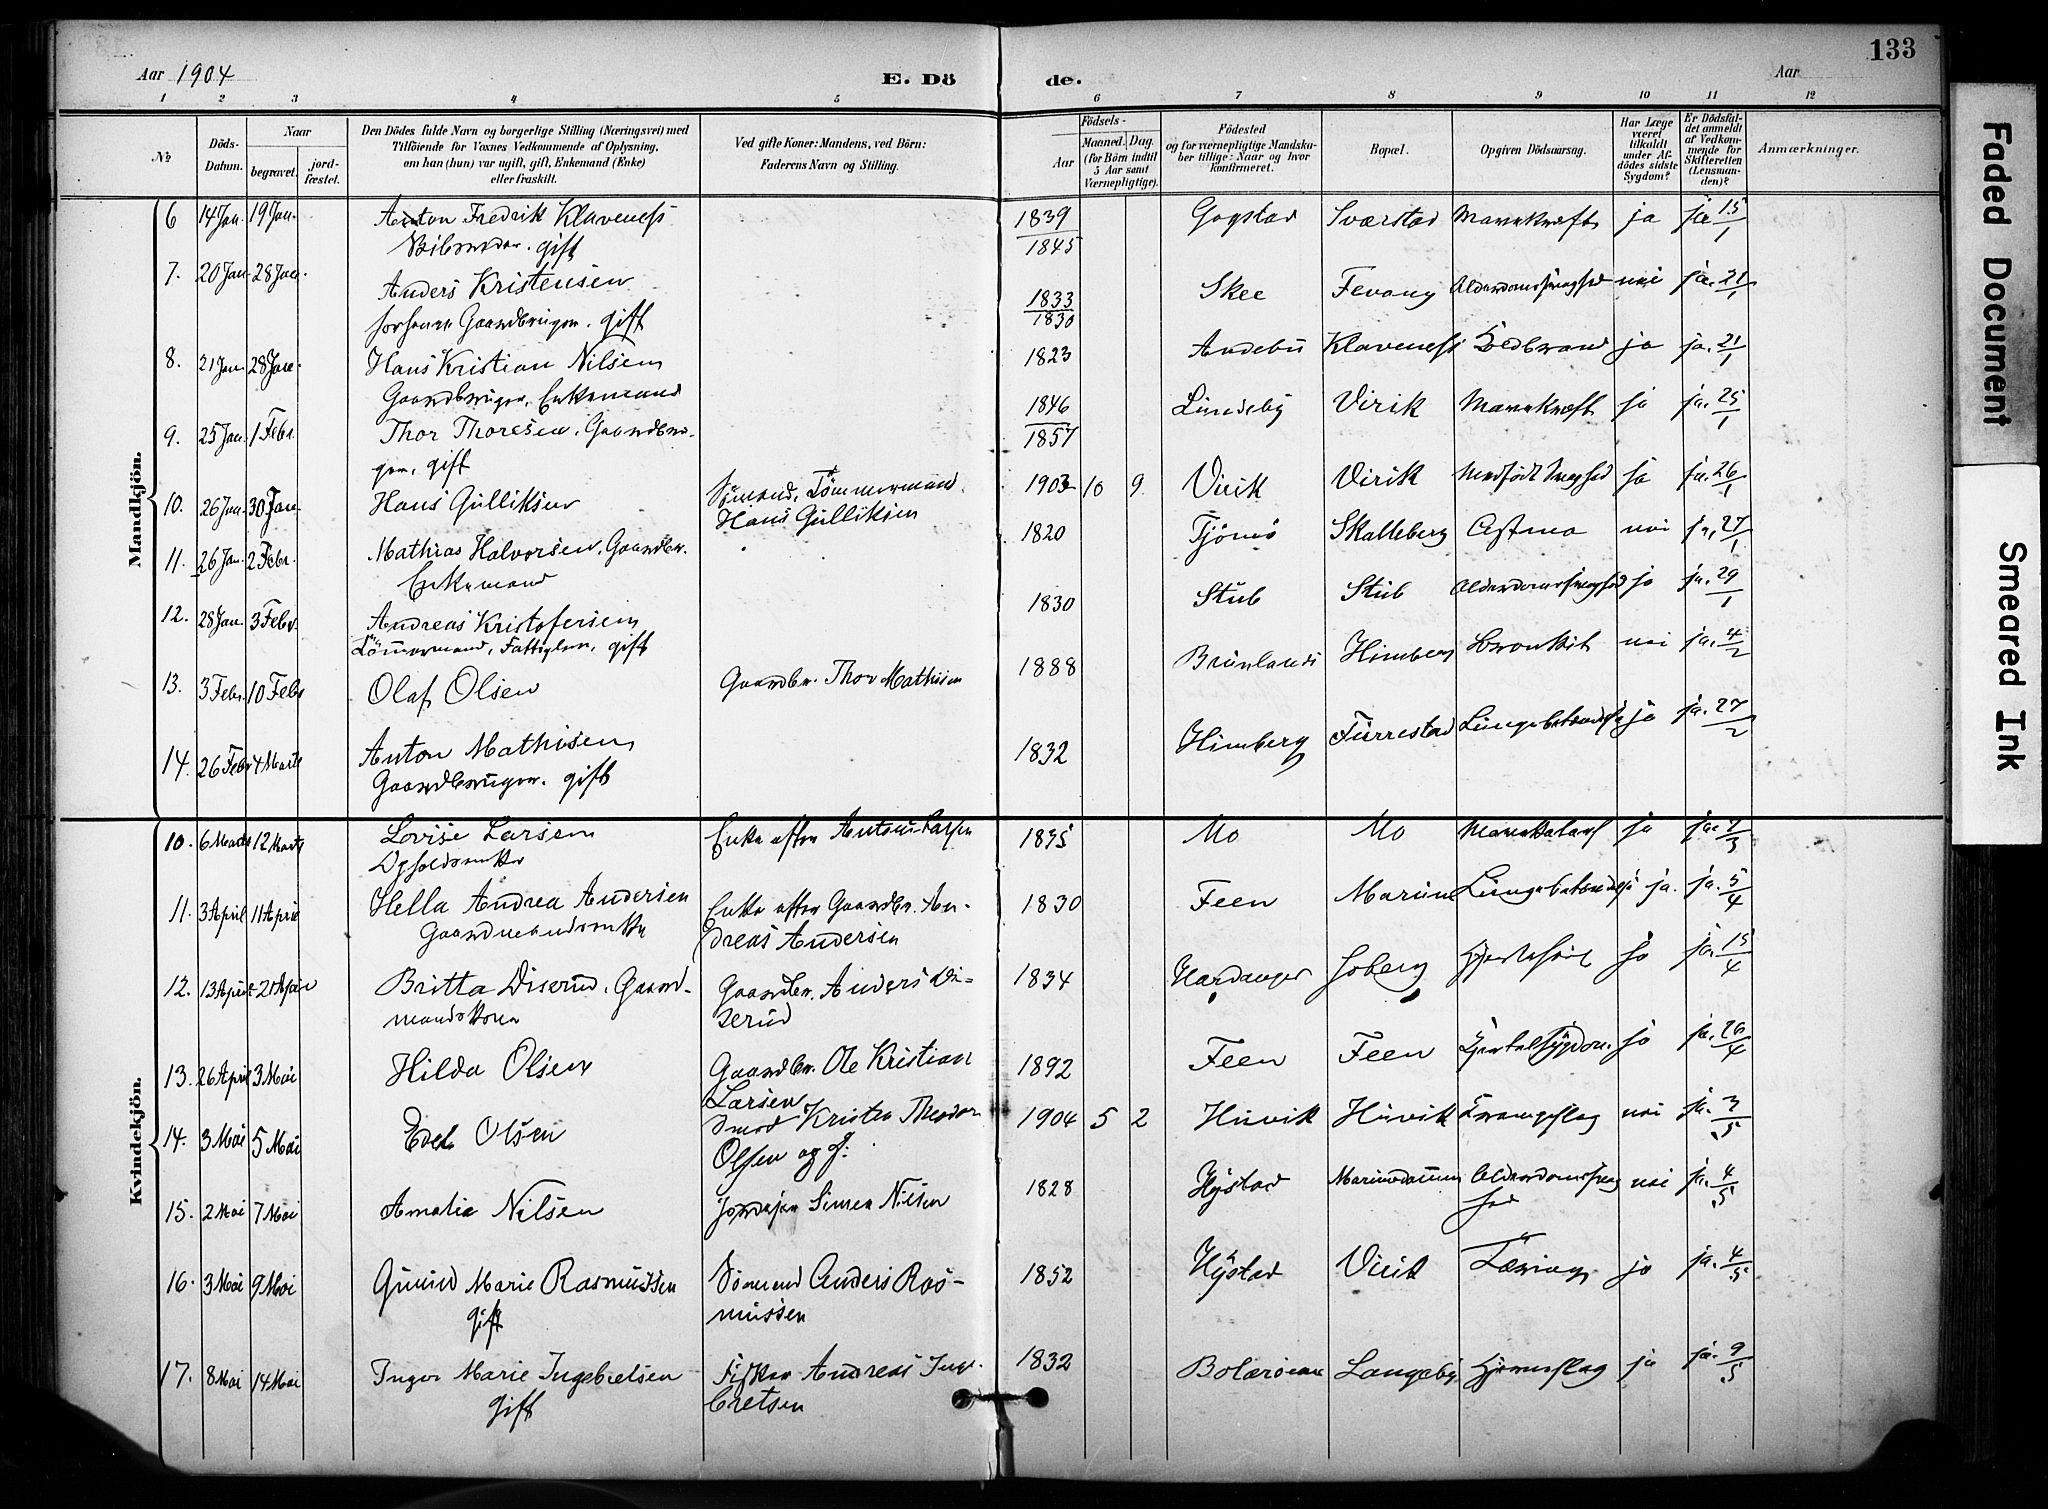 133
Aar 1904
E. Döde.
Aar
1 2 3 4 5 6 7 8 9 10 11 12
№
Döds-Datum.
Naar
begravet.
jord-fæstet.
Den Dödes fulde Navn og borgerlige Stilling (Næringsvei) med
Tilföiende for Voxnes Vedkommende af Oplysning,
om han (hun) var ugift, gift, Enkemand (Enke)
eller fraskilt.
Ved gifte Koner: Mandens, ved Börn:
Faderens Navn og Stilling.
Födsels-
Aar
Maaned. Dag.
(for Börn indtil
5 Aar samt
Værnepligtige).
Födested
og for værnepligtige Mandska-
ber tillige: Naar og hvor
konfirmeret.
Bopæl.
Opgiven Dödsaarsag.
Har Læge
været
tilkaldt
under Af-
dödes sidste
Sygdom?
Er Dödsfal-
det anmeldt
af Vedkom-
mende for
Skifteretten
(Lensman-
den)?
Anmærkninger.
Mandkjön.
6 14 Jan. 19 Jan. Anton Fredrik Klaveness 1839 Gogstad Sværstad Mavekræft ja ja 15/1
gift 1845
7. 20 Jan 28 Jan. Anders Kristensen 1833 Skee Fevang Alderdomssvaghed nei ja. 21/1
Gaardbruger. gift 1830
8. 21 Jan 28 Jan. Hans Kristian Nilsen 1823 Andebu Klaveness Koldbrand ja ja. 21/1
Gaardbruger, Enkemand
9. 25 Jan. 1 Febr. Thor Thoresen, Gaardbru- 1846 Lindeby Virik Mavekræft ja ja. 25/1
ger, gift 1857
10. 26 Jan 30 Jan. Hans Gulliksen Sömand, Tömmermand 1903 10 9 Virik Virik Medfödt svaghed ja ja. 26/1
Hans Gulliksen
11. 26 Jan. 2 Febr. Mathias Halvorsen, Gaardbr. 1820 Tjömö Skalleberg Astma nei ja, 27/1
Enkemand
12. 28 Jan. 3 Febr. Andreas Kristofersen 1830 Stub Stub Alderdomssvaghed ja ja. 29/1
Tömmermand, Fattiglem, gift
13. 3 Febr. 10 Febr Olaf Olsen Gaardbr. Thor Mathisen 1888 Brunlanes Himberg Bronkit nei ja. 4/2
14. 26 Febr 4 Marts Anton Mathisen 1832 Himberg Furrestad Lungebetændelse ja ja. 27/2
Gaardbruger. gift
Kvindekjön.
10. 6 Marts 12 Marts Lovise Larsen Enke efter Anton Larsen 1835 Mo Mo Mavekatarh ja ja. 7/3
11. 3 April 11 April Hella Andrea Andersen Enke efter Gaardbr. An- 1830 Feen Marum Lungebetændelse ja. ja. 5/4
Gaardmandsenke dreas Andersen
12. 13 April 21 April Britta Diserud, Gaard- Gaardbr. Anders Di- 1834 Hardanger Soberg ja ja. 15/4
mandskone serud
13. 26 April 3 Mai Hilda Olsen Gaardbr. Ole Kristian 1892 Feen Feen Hjertesygdom ja ja. 26/4
Larsen
14. 3 Mai 5 Mai Edel Olsen Smed Kristen Theodor 1904 5 2 Huvik Huvik Krampeslag nei ja. 3/5
Olsen og h:
15. 2 Mai 7 Mai Amalie Nilsen Simen Nilsen 1828 Hystad Marumdalen Alderdomssvag- nei ja. 4/5
hed
16. 3 Mai 9 Mai Gunild Marie Rasmussen Sömand Anders Ras- 1852 Hystad Virik Tæring ja ja. 4/5
gift mussen
17. 8 Mai 14 Mai Inger Marie Ingebretsen Fisker Andreas Inge- 1832 Bolærerne Langeby Hjerneslag ja ja. 9/5
gift bretsen
Faded Document
Smeared Ink